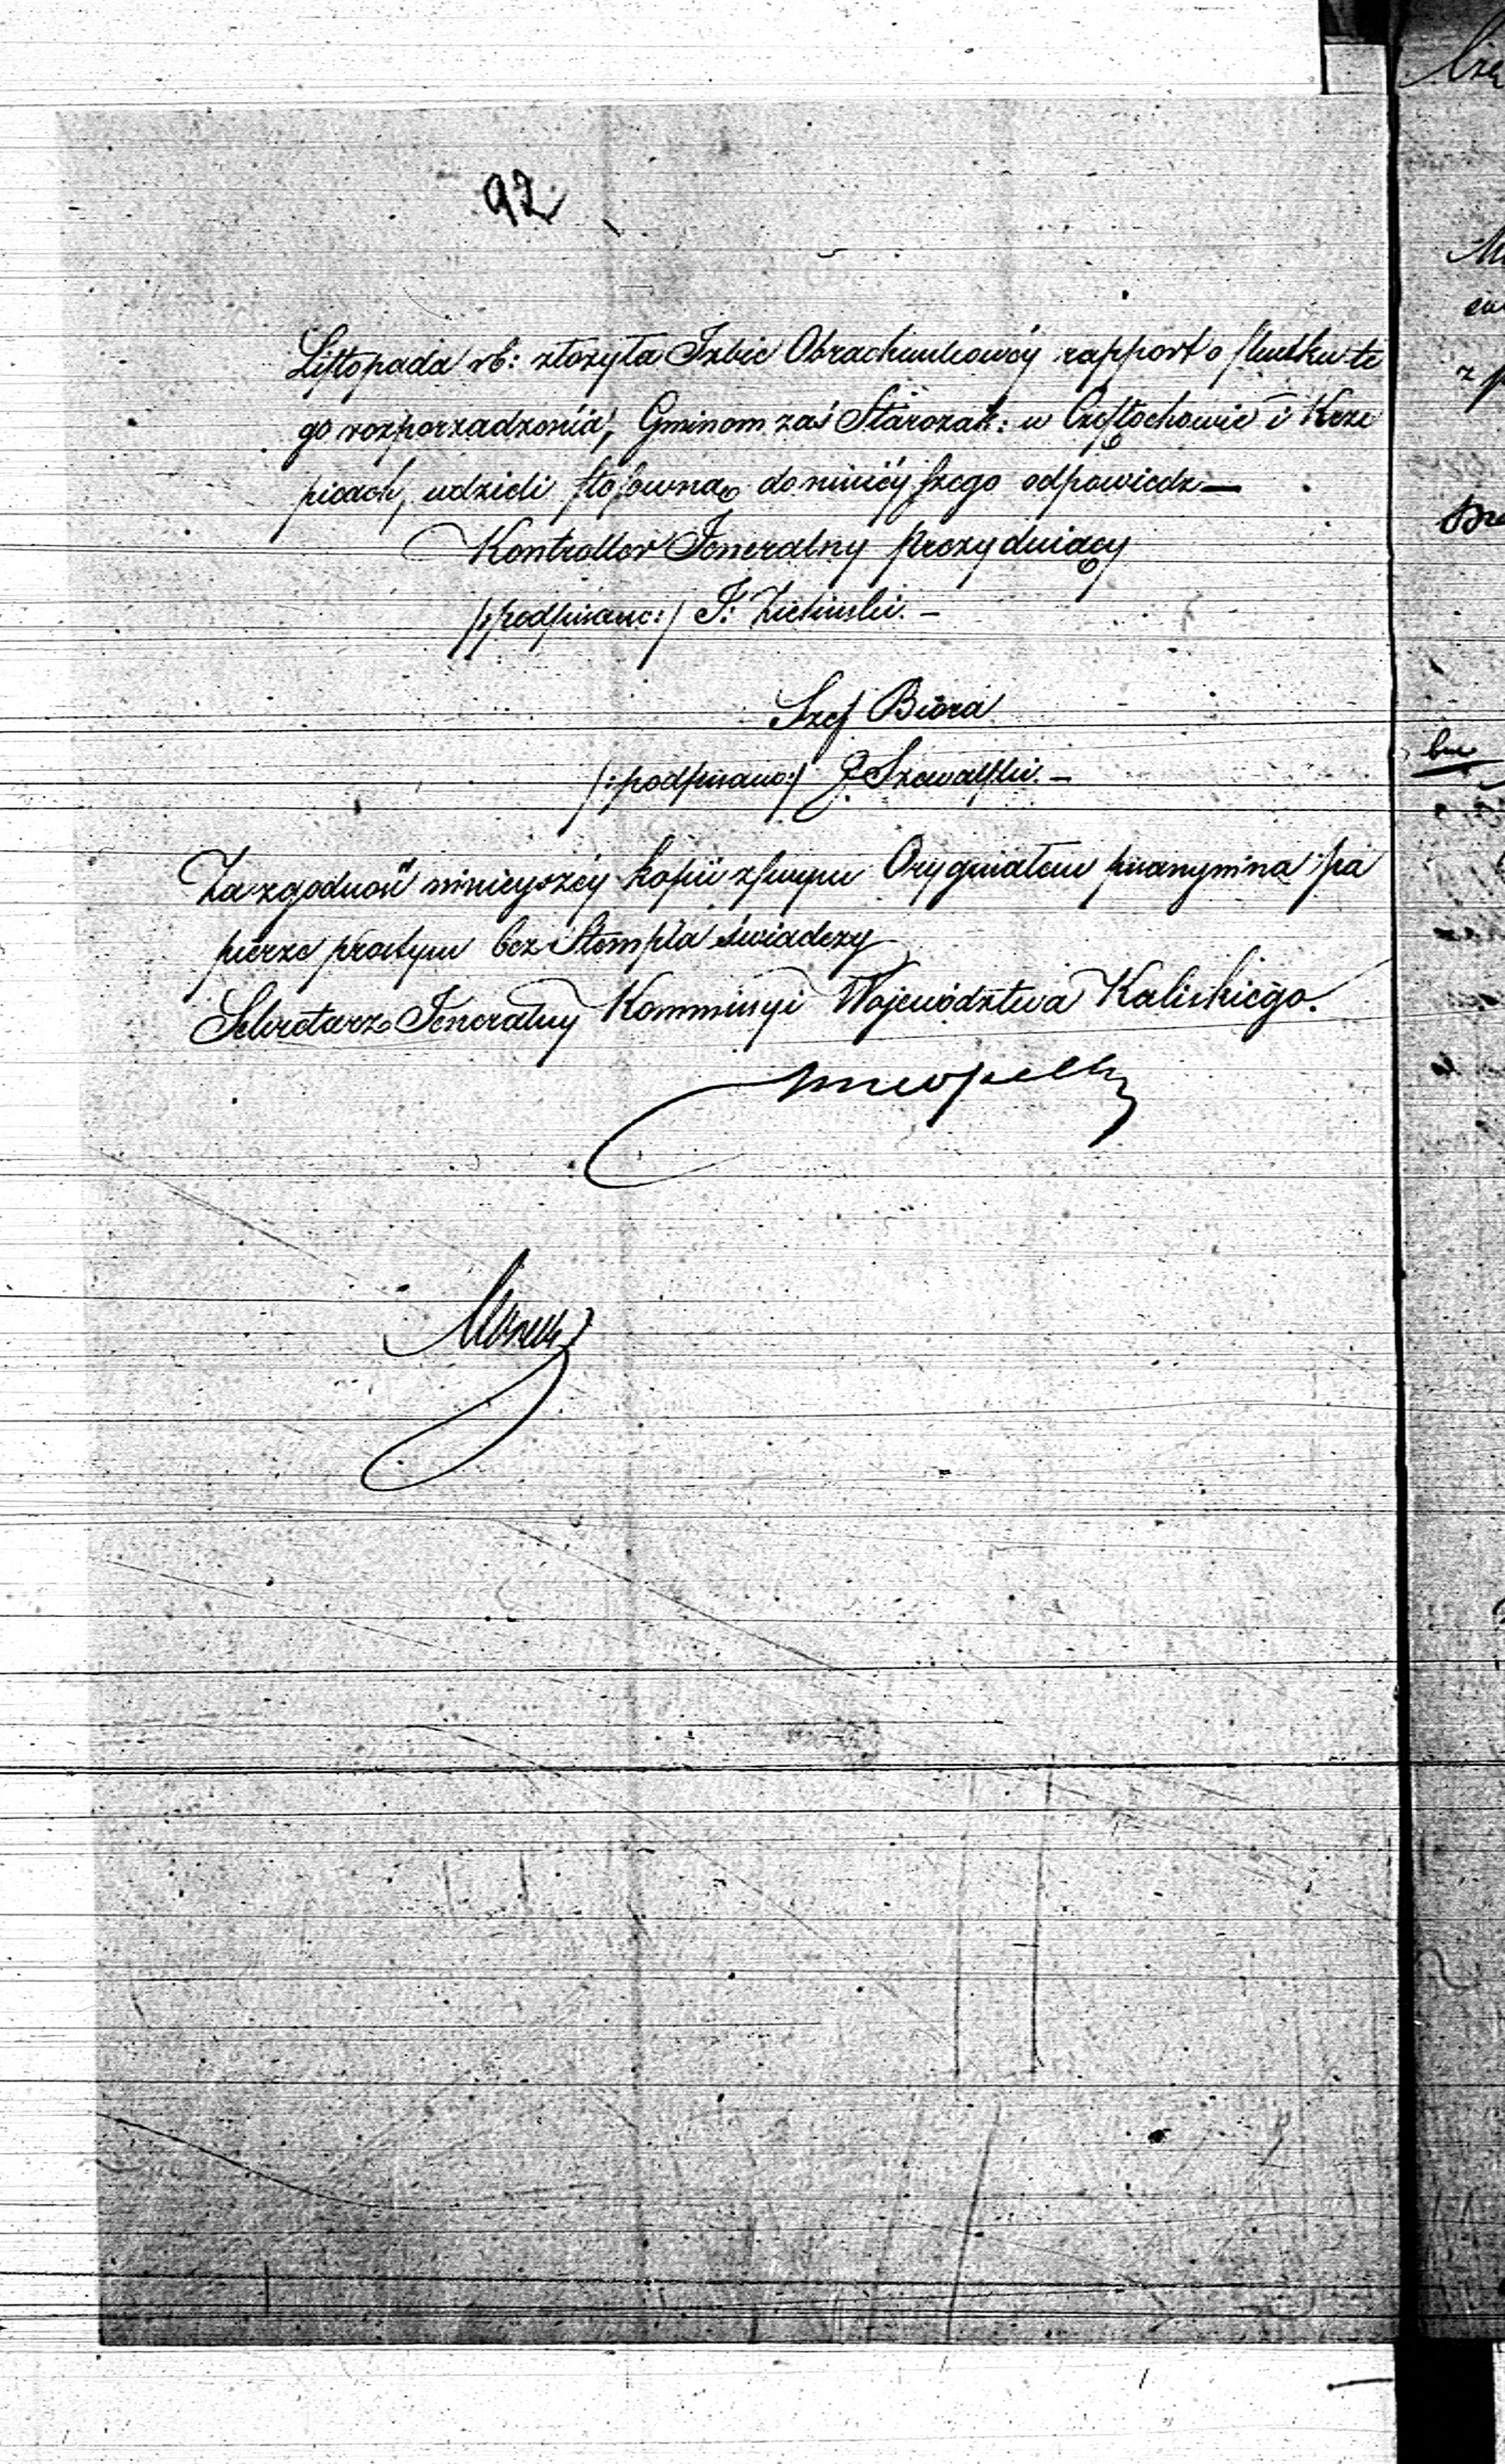 92
Listopada rb: złożyła Izbie Obrachunkowéy rapport o skutku te
go rozporządzenia, Gminom zaś Starozak: w Częstochowie i Krze
picach, udzieli stosowną do ninieyszego odpowiedz —
Kontroller Jeneralny Prezyduiący
/:podpisano:/ J: Zieliński. —
Szef Bióra
/:podpisano:/ J. Szawalski. —
Za zgodność ninieyszéy kopii z swym Oryginałem pisanym na pa
pierze prostym bez Stempla świadczy
Sekretarz Jeneralny Kommissyi Województwa Kaliskiego.